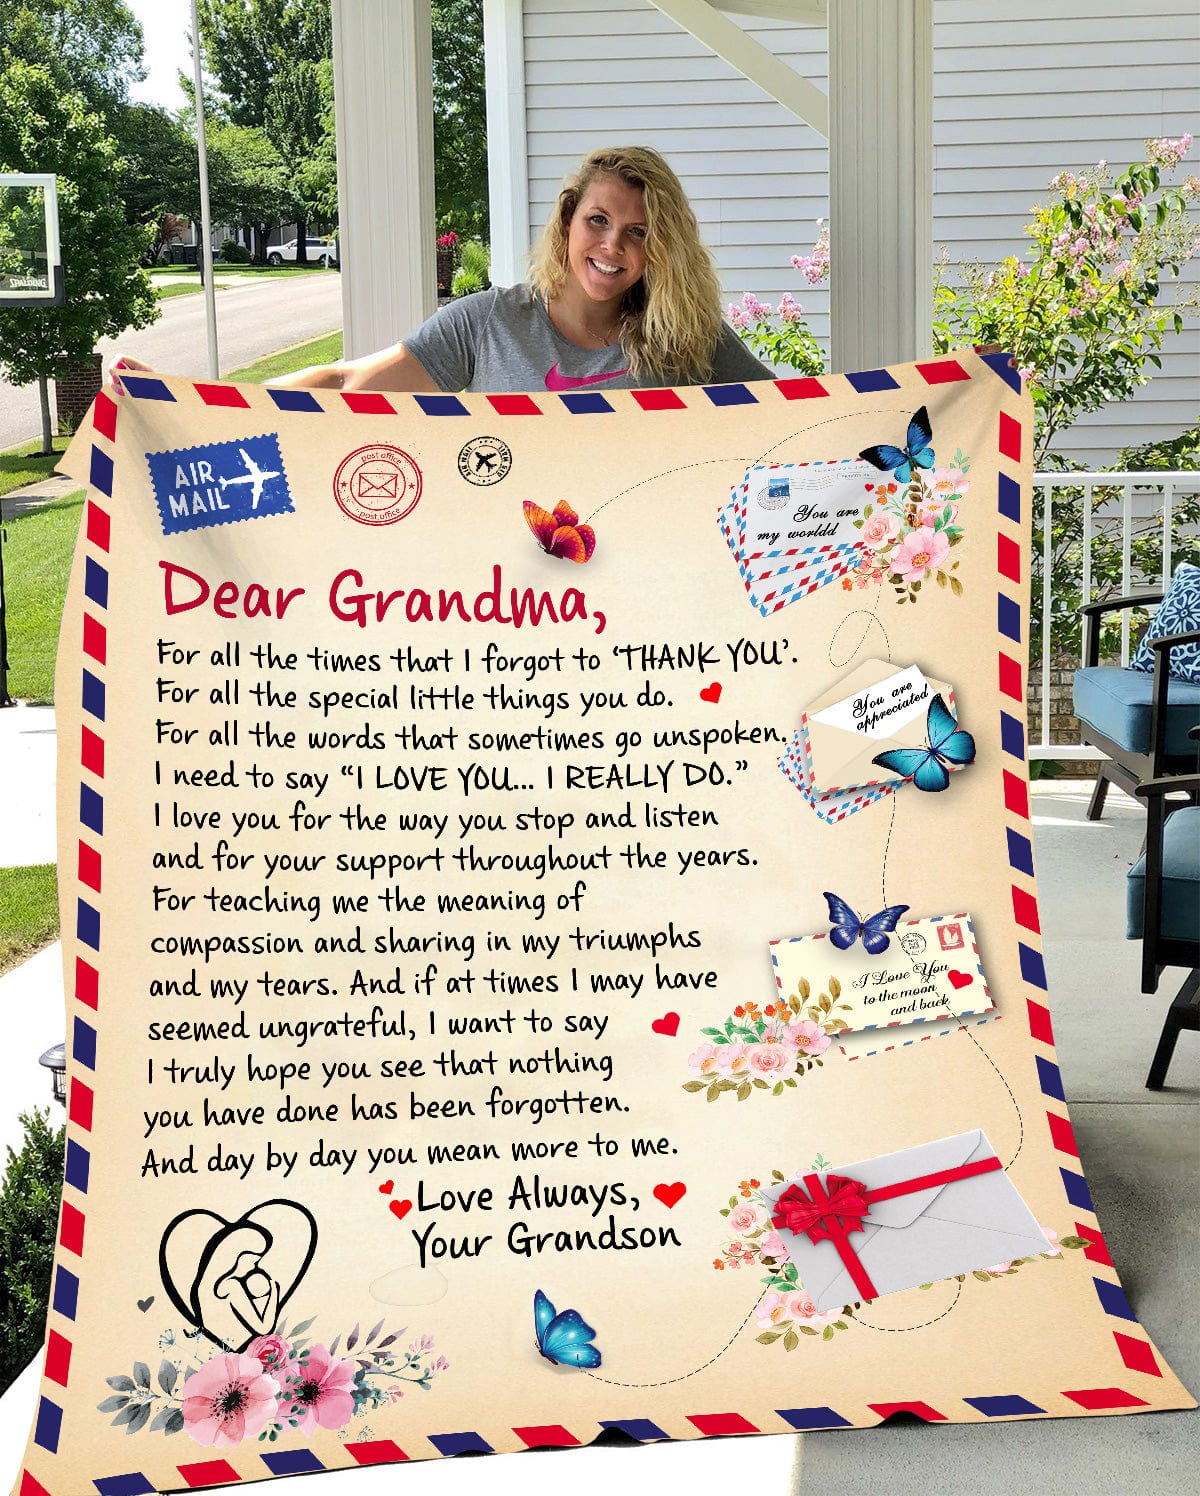 SPALDING
AIR
MAIL
post office
post office
AIR MAIL
You are
my worldd
Dear Grandma,
For all the times that I forgot to ‘THANK YOU’.
For all the special little things you do.
You are
appreciated
For all the words that sometimes go unspoken.
I need to say “I LOVE YOU... I REALLY DO.”
I love you for the way you stop and listen
and for your support throughout the years.
For teaching me the meaning of
compassion and sharing in my triumphs
and my tears. And if at times I may have
I Love You
to the moon
and back
seemed ungrateful, I want to say
I truly hope you see that nothing
you have done has been forgotten.
And day by day you mean more to me.
Love Always,
Your Grandson